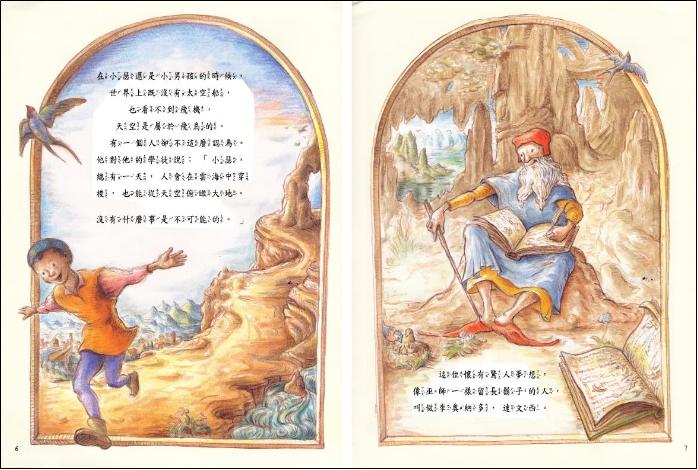 在小瑟還是小男孩的時候，
世界上既沒有太空船，
也看不到飛機，
天空是屬於飛鳥的。
有一個人卻不這麼認為。
他對他的學徒說：「小瑟，
總有一天，人會在雲海中穿
梭，也能從天空俯瞰大地。
沒有什麼事是不可能的。」
6
這位懷有驚人夢想，
像巫師一樣留長鬍子的人，
叫做李奧納多．達文西。
7